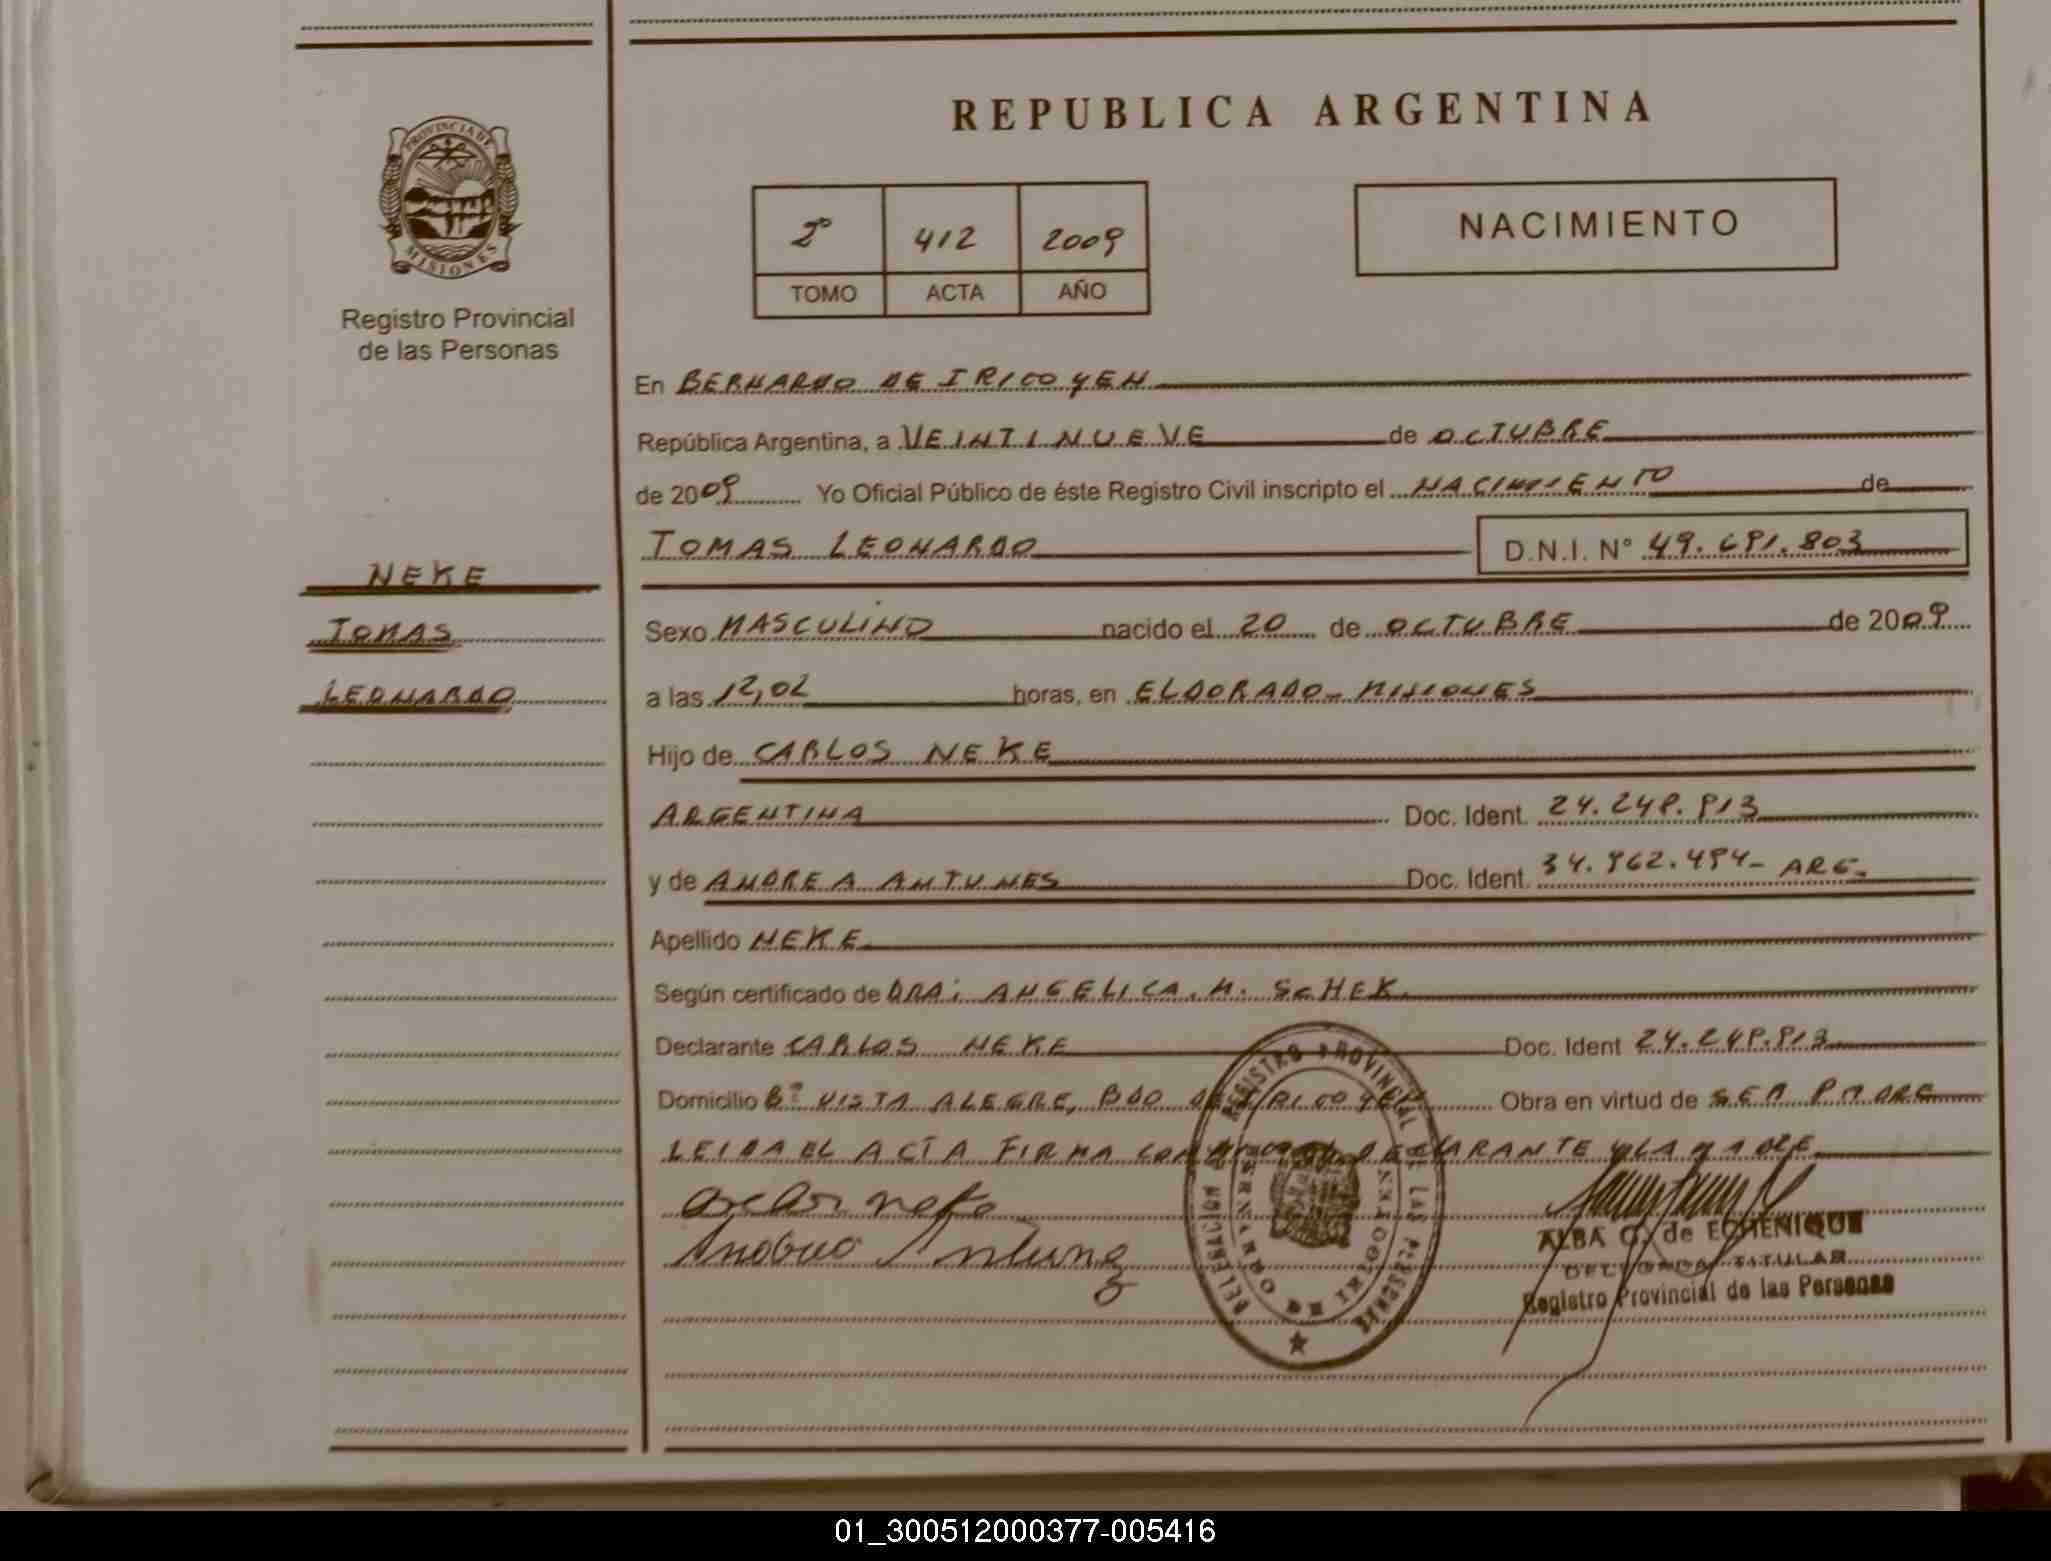 REPUBLICA ARGENTINA
PROVINCIA DE
MISIONES
Registro Provincial
de las Personas
2º 412 2009
TOMO ACTA AÑO
NACIMIENTO
En BERNARDO DE IRIGOYEN
República Argentina, a VEINTINUEVE de OCTUBRE
de 2009 Yo Oficial Público de éste Registro Civil inscripto el NACIMIENTO de
TOMAS LEONARDO D.N.I. Nº 49.691.803
NEKE
TOMAS
LEONARDO
Sexo MASCULINO nacido el 20 de OCTUBRE de 2009
a las 12,02 horas, en ELDORADO - MISIONES
Hijo de CARLOS NEKE
ARGENTINA Doc. Ident. 24.248.913
y de ANDREA ANTUNES Doc. Ident. 34.962.494 - ARG.
Apellido NEKE
Según certificado de DRA: ANGELICA. M. SCHEK
Declarante CARLOS NEKE Doc. Ident 24.248.913
Domicilio Bº VISTA ALEGRE, BDO DE IRIGOYEN Obra en virtud de SER PADRE
LEIDA EL ACTA FIRMA CONMIGO EL DECLARANTE Y LA MADRE
REGISTRO PROVINCIAL DE LAS PERSONAS
DELEGACION
BERNARDO DE IRIGOYEN
ALBA G. de ECHENIQUE
DELEGADA TITULAR
Registro Provincial de las Personas
01_300512000377-005416